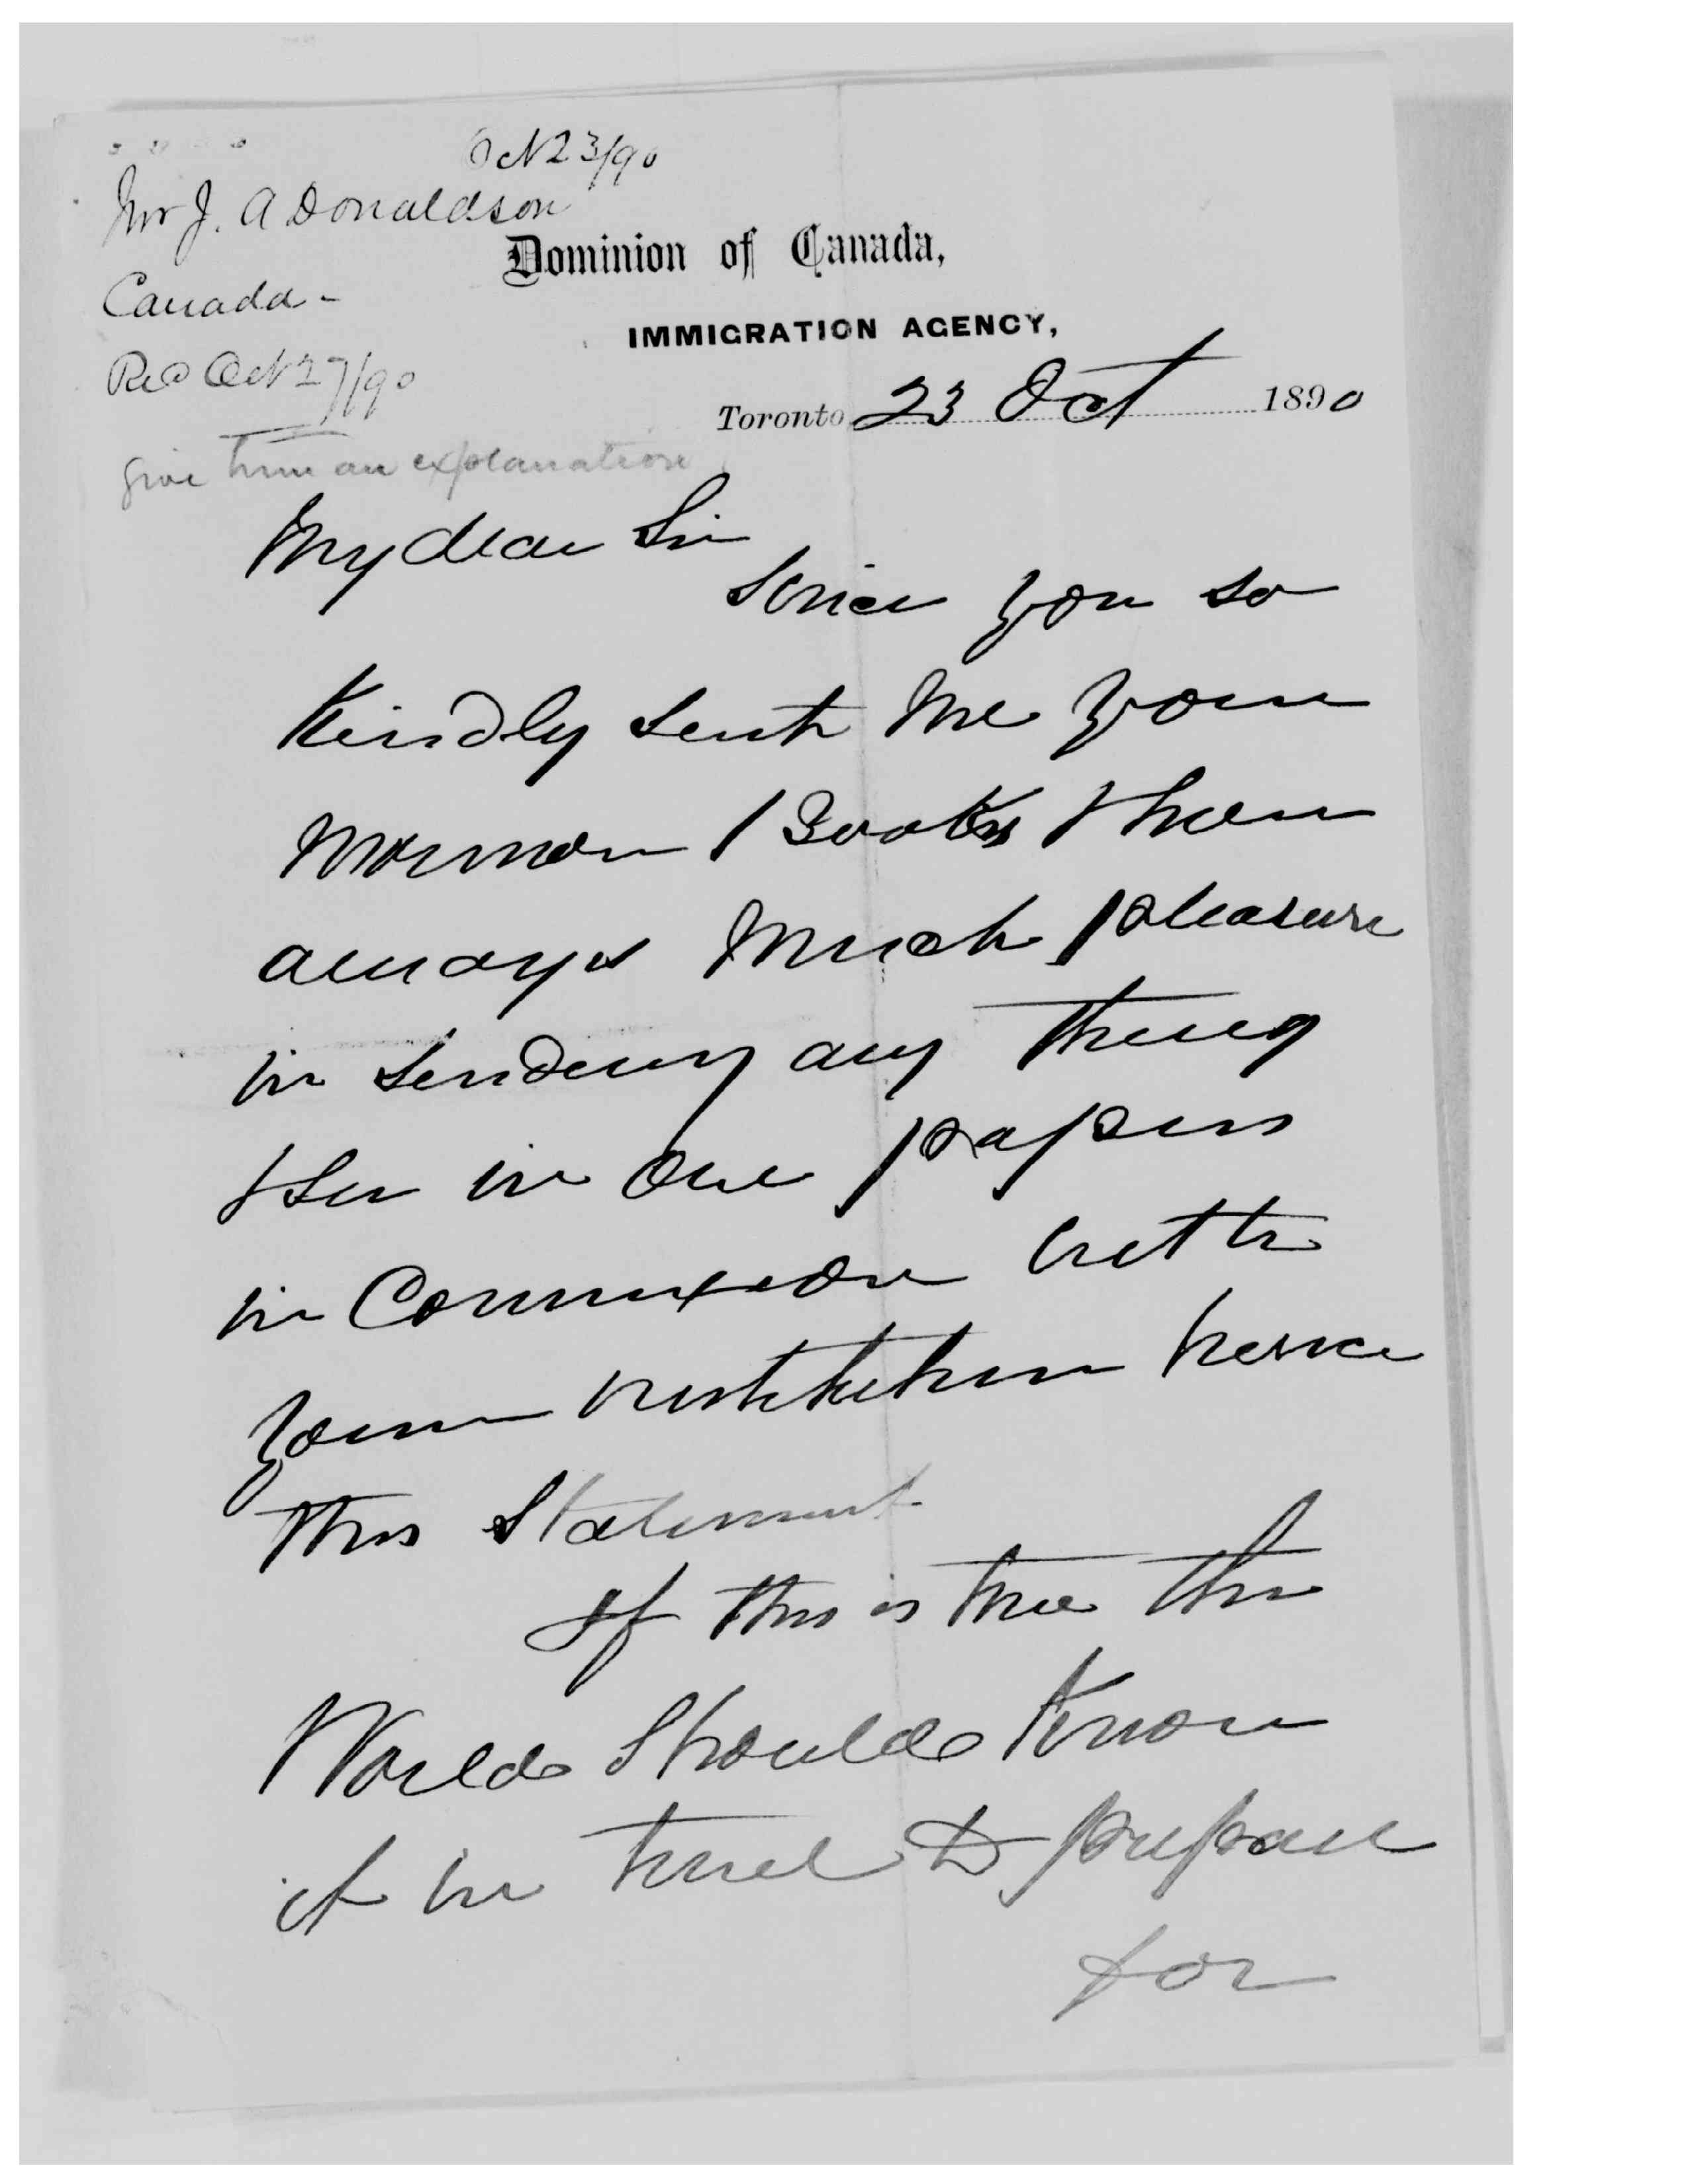 Oct 23/90
Mr J. A Donaldson
Canada -
Rec'd Oct 27/90
give him an explanation
Dominion of Canada,
IMMIGRATION AGENCY,
Toronto 23 Oct 1890
My dear Sir
Since you so
Kindly sent me your
Mormon Books I have
always much pleasure
in sending any thing
I See in our papers
in Connexion with
your institution hence
this Statement
If this is true the
World should Know
it in time to prepare
for